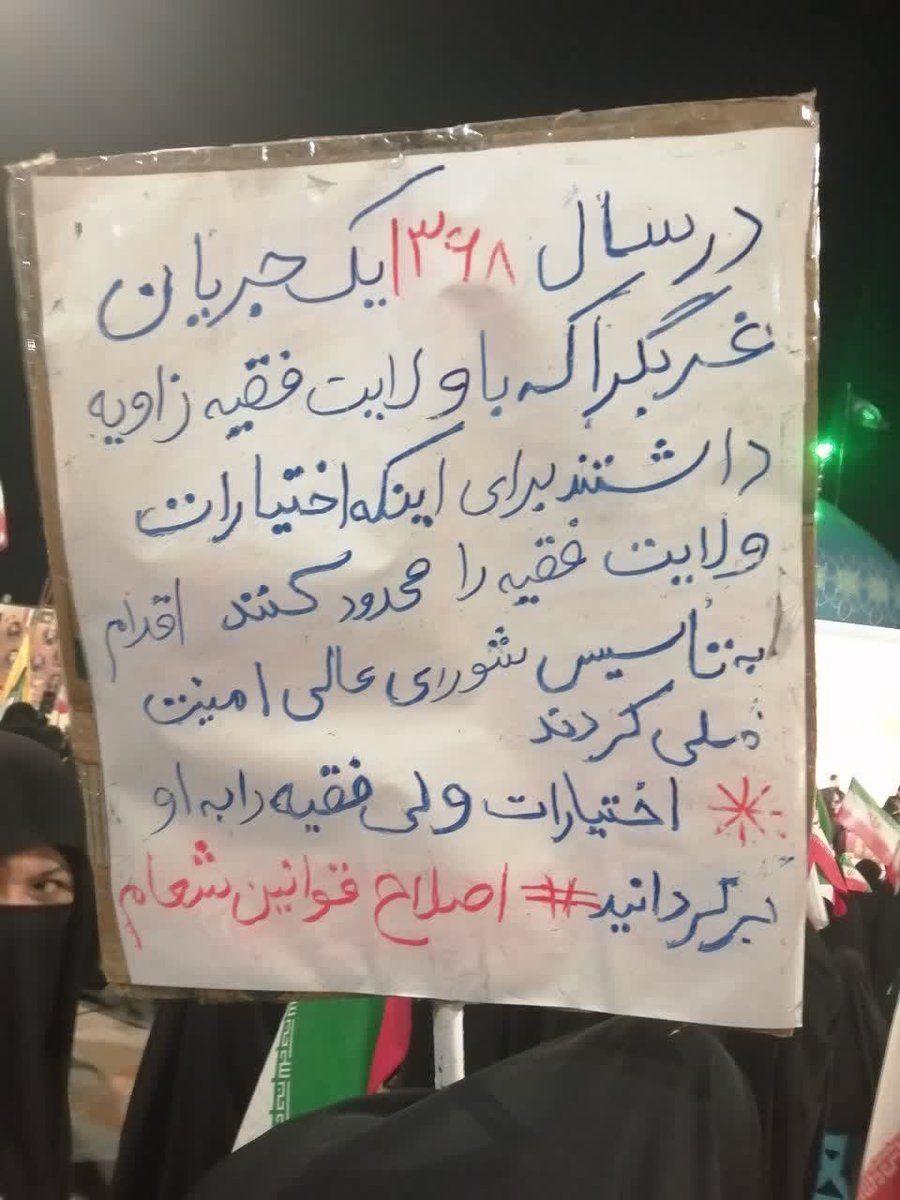 در سال ۱۳۶۸ یک جریان
غربگرا که با ولایت فقیه زاویه
داشتند برای اینکه اختیارات
ولایت فقیه را محدود کنند اقدام
به تاسیس شورای عالی امنیت
ملی کردند
* اختیارات ولی فقیه را به او
برگردانید # اصلاح قوانین شعام